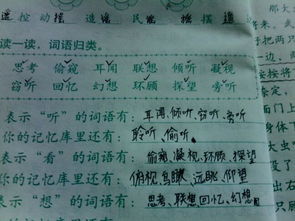 控 动 造 民 摇 摆
读一读，词语归类。
思考 偷窥 耳闻 联想 倾听 凝视
窃听 回忆 幻想 环顾 探望 旁听
表示“听”的词语有：耳闻、倾听、窃听、旁听
你的记忆库里还有：聆听、偷听。
表示“看”的词语有：偷窥、凝视、环顾、探望
你的记忆库里还有：俯视、鸟瞰、远眺、仰望
表示“想”的词语有：思考、联想、回忆、幻想
那大
来。武
好把两只
边，离
按按将
泰定，
上方
大虫